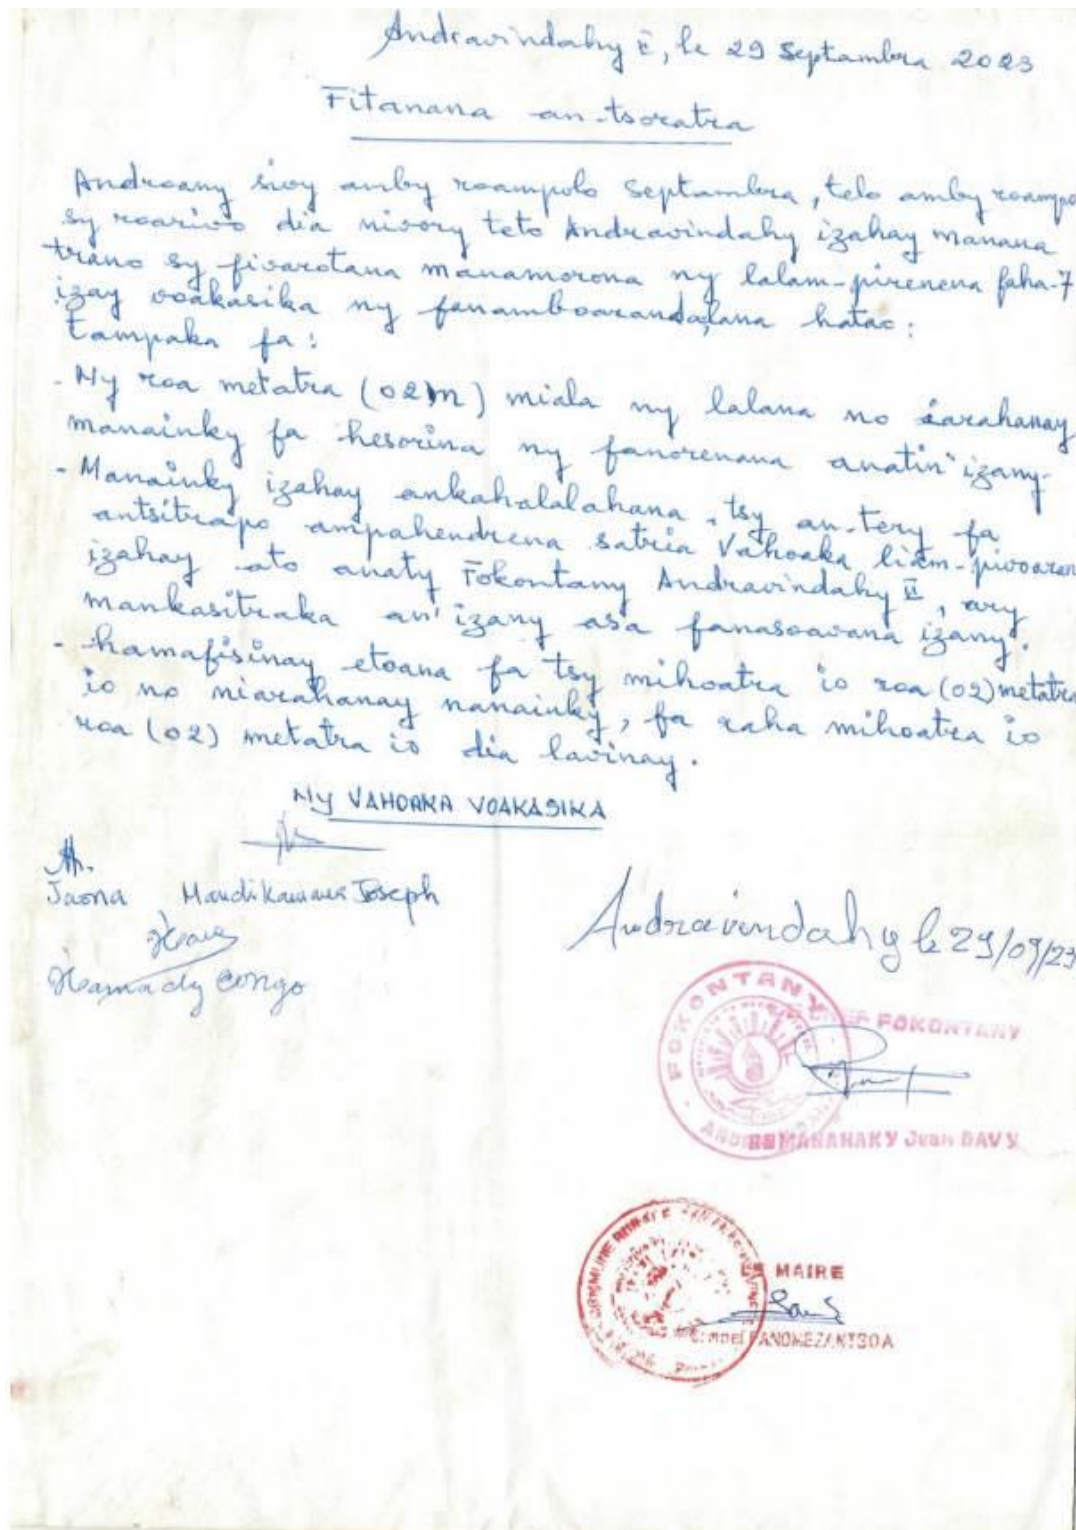 Andravindahy II, le 29 Septambra 2023
Fitanana an-tsoratra
Androany sivy amby roampolo Septambra, telo amby roampo
sy roarivo dia nivory teto Andravindahy izahay manana
trano sy fivarotana manamorona ny lalam-pirenena faha-7
izay voakasika ny fanamboarandalana hatao:
Tampaka fa:
- Ny roa metatra (02m) miala ny lalana no iarahanay
manainky fa hesorina ny fanorenana anatin'izany.
- Manainky izahay ankahalalahana, tsy an-tery fa
antsitrapo ampahendrena satria Vahoaka liam-pivoaran
izahay ato anaty Fokontany Andravindahy II, ary
mankasitraka an'izany asa fanasoavana izany.
- hamafisinay etoana fa tsy mihoatra io roa (02) metatra
io no niarahanay nanainky, fa raha mihoatra io
roa (02) metatra io dia lavinay.
Ny VAHOAKA VOAKASIKA
Jaona Mandikamana Joseph
Hamady Congo
Andravindahy le 29/09/23
FOKONTANY
FOKONTANY
MANAHAKY Jean DAVY
COMMUNE RURALE
MAIRE
FANOMEZANTSOA